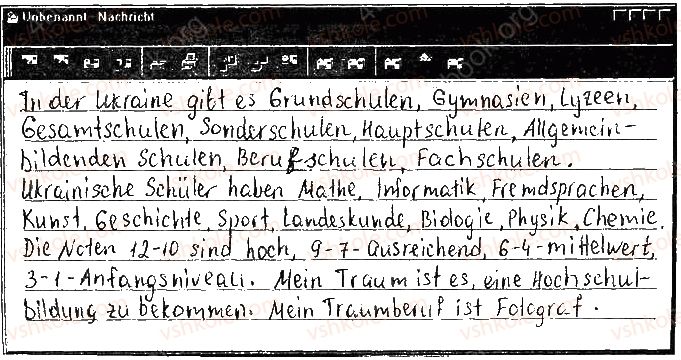 Unbenannt - Nachricht
In der Ukraine gibt es Grundschulen, Gymnasien, Lyzeen,
Gesamtschulen, Sonderschulen, Hauptschulen, Allgemein-
bildenden Schulen, Berufsschulen, Fachschulen.
Ukrainische Schüler haben Mathe, Informatik, Fremdsprachen,
Kunst, Geschichte, Sport, Landeskunde, Biologie, Physik, Chemie.
Die Noten 12-10 sind hoch, 9-7-Ausreichend, 6-4-mittelwert,
3-1-Anfangsniveau. Mein Traum ist es, eine Hochschul-
bildung zu bekommen. Mein Traumberuf ist Fotograf.